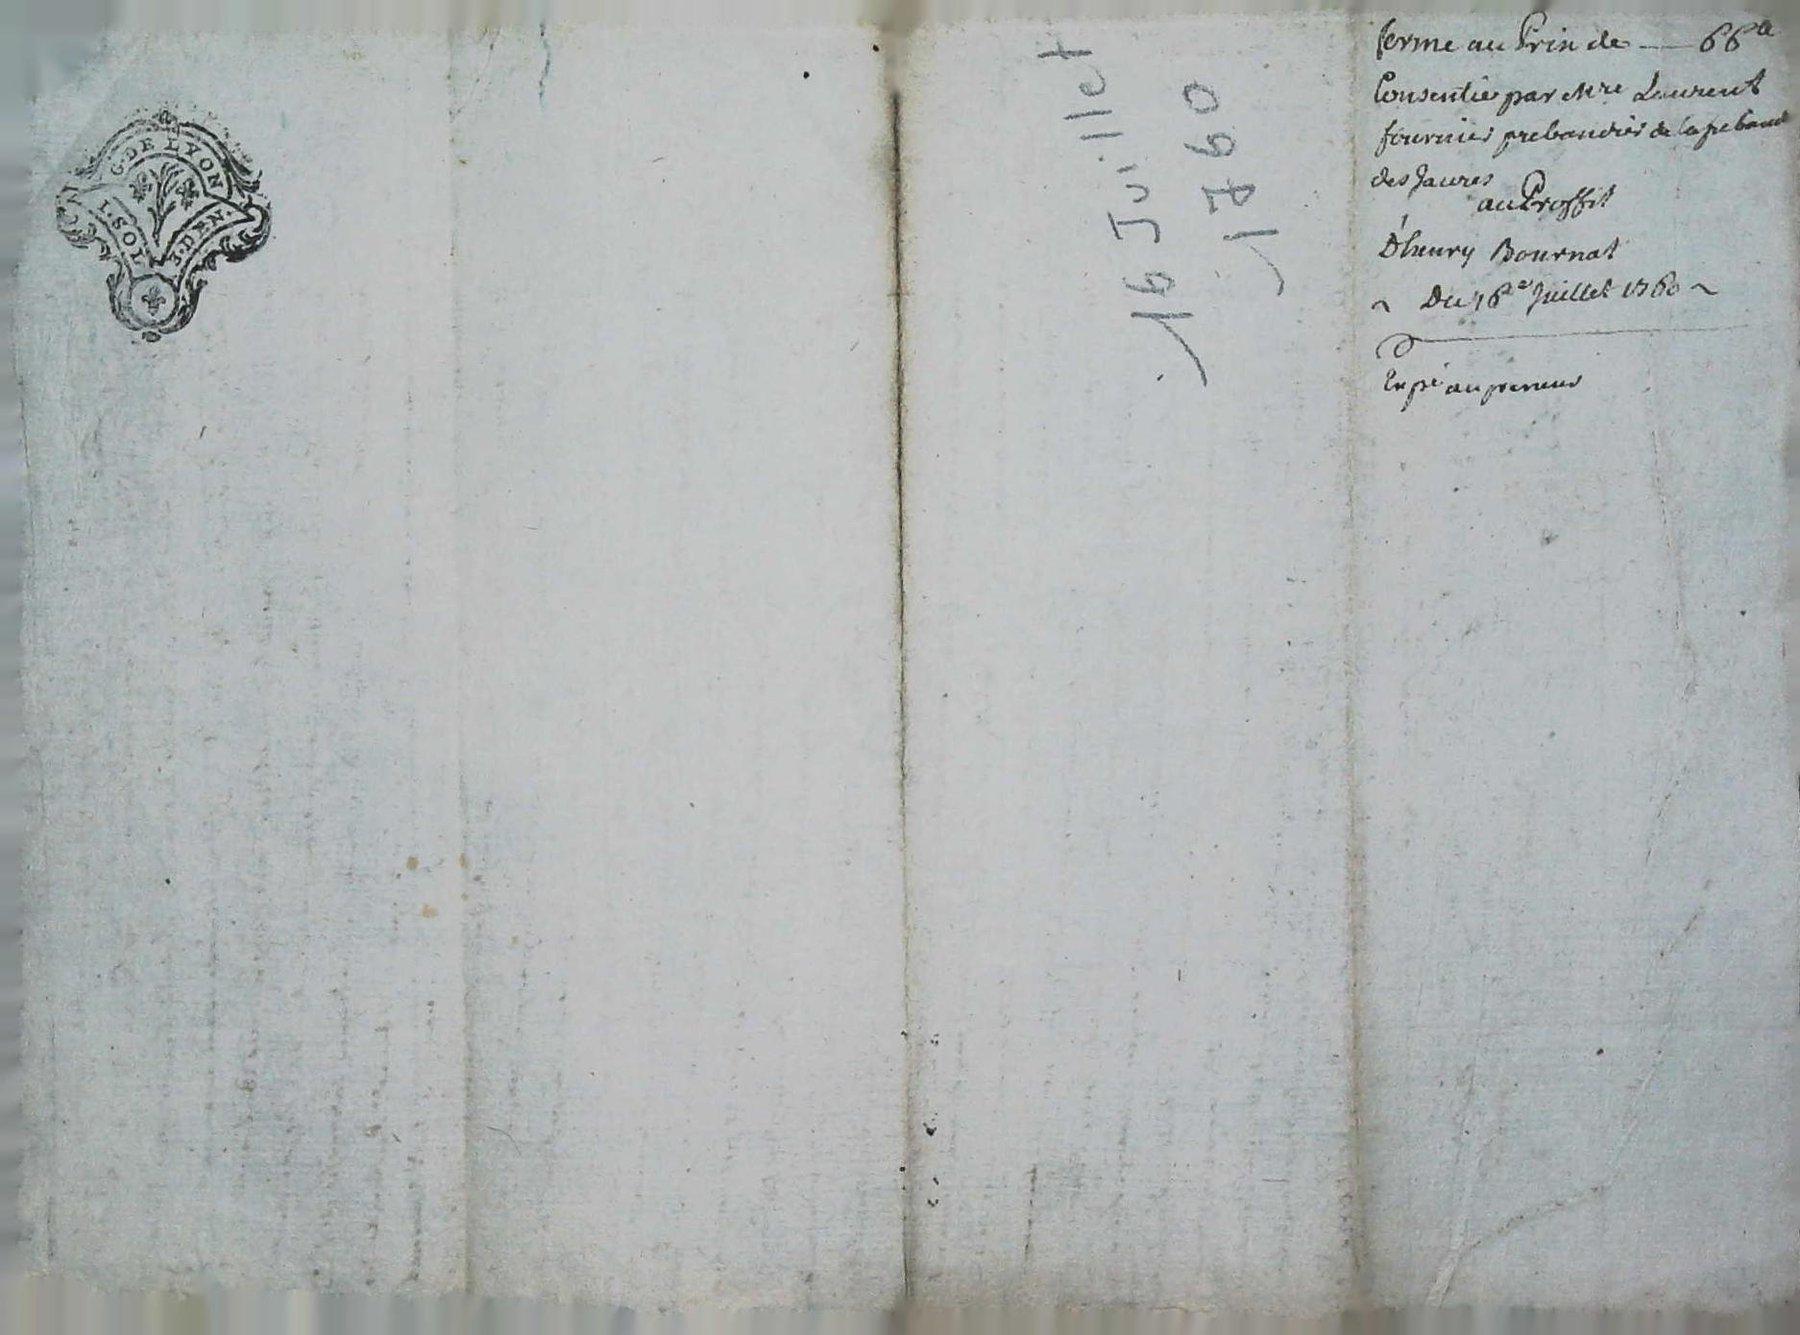 G. DE LYON
1. SOL
DEN.
16 Juillet
1760
ferme au Prix de — 66ᵗᵗ
Consentie par Mre Laurent
fournier prebandier de la prebande
des Jaures
au Proffit
D'henry Bournat
~ Du 16e Juillet 1760 ~
Expé au preneur